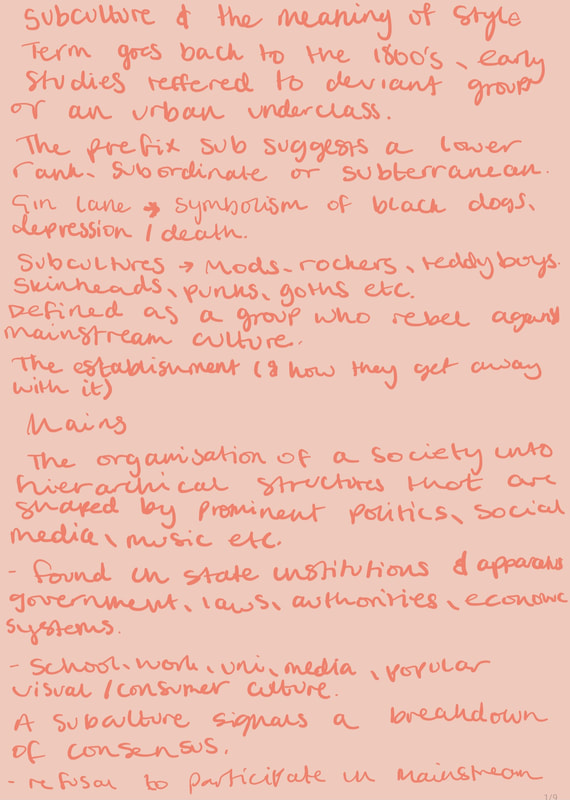 Subculture & the meaning of Style
Term goes back to the 1800's, early
studies reffered to deviant groups
or an urban underclass.
The prefix sub suggests a lower
rank. Subordinate or subterranean.
Gin lane → symbolism of black dogs,
depression / death.
Subcultures → Mods, rockers, teddyboys.
Skinheads, punks, goths etc.
Defined as a group who rebel against
mainstream culture.
The establishment (& how they get away
with it)
Mains
The organisation of a society into
hierarchical structures that are
shaped by prominent politics, social
media, music etc.
- found in state institutions & apparatus
government, laws, authorities, economic
systems.
- School, work, uni, media, popular
visual / consumer culture.
A subculture signals a breakdown
of consensus.
- refusal to participate in mainstream
1/9